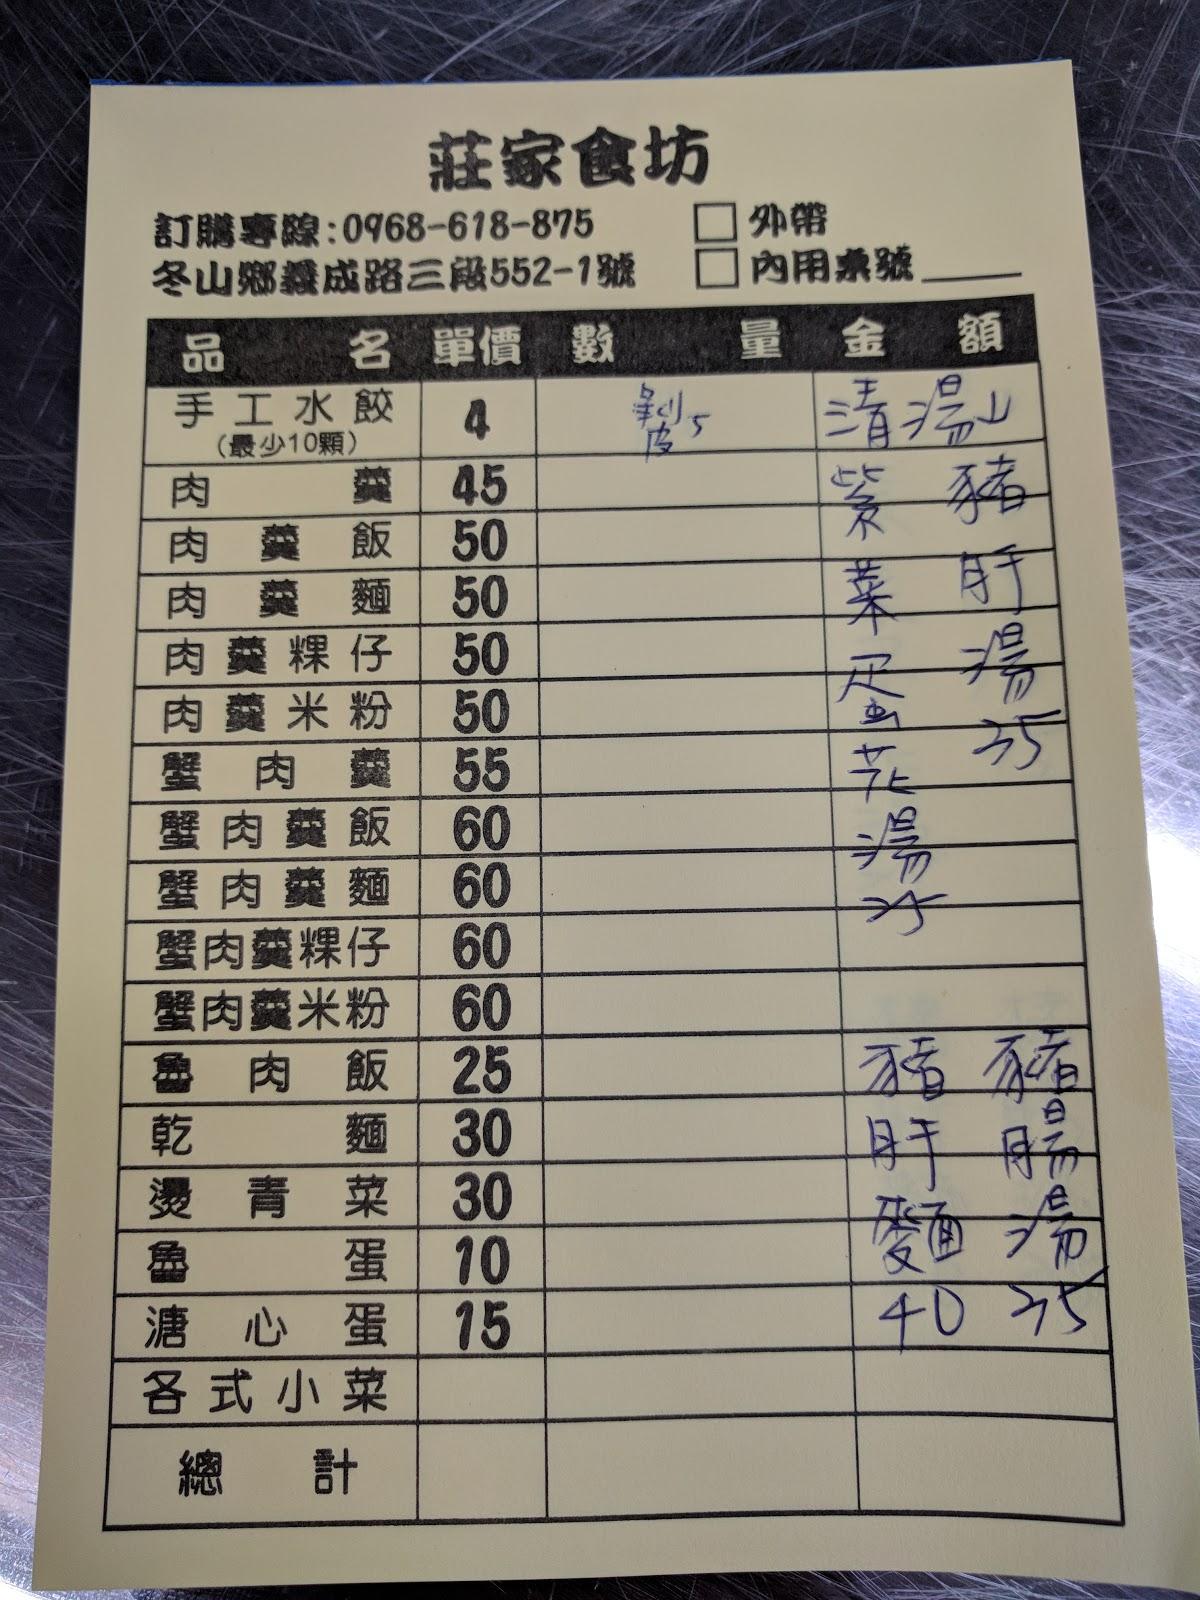 莊家食坊
訂購專線:0968-618-875 □外帶
冬山鄉義成路三段552-1號 □內用桌號____
品名 單價 數量 金額
手工水餃 4
(最少10顆)
肉羹 45
肉羹飯 50
肉羹麵 50
肉羹粿仔 50
肉羹米粉 50
蟹肉羹 55
蟹肉羹飯 60
蟹肉羹麵 60
蟹肉羹粿仔 60
蟹肉羹米粉 60
魯肉飯 25
乾麵 30
燙青菜 30
魯蛋 10
溏心蛋 15
各式小菜
總計
皮 5
清湯
紫菜蛋花湯
豬肝湯
35
豬肝麵
40
豬腸湯
35